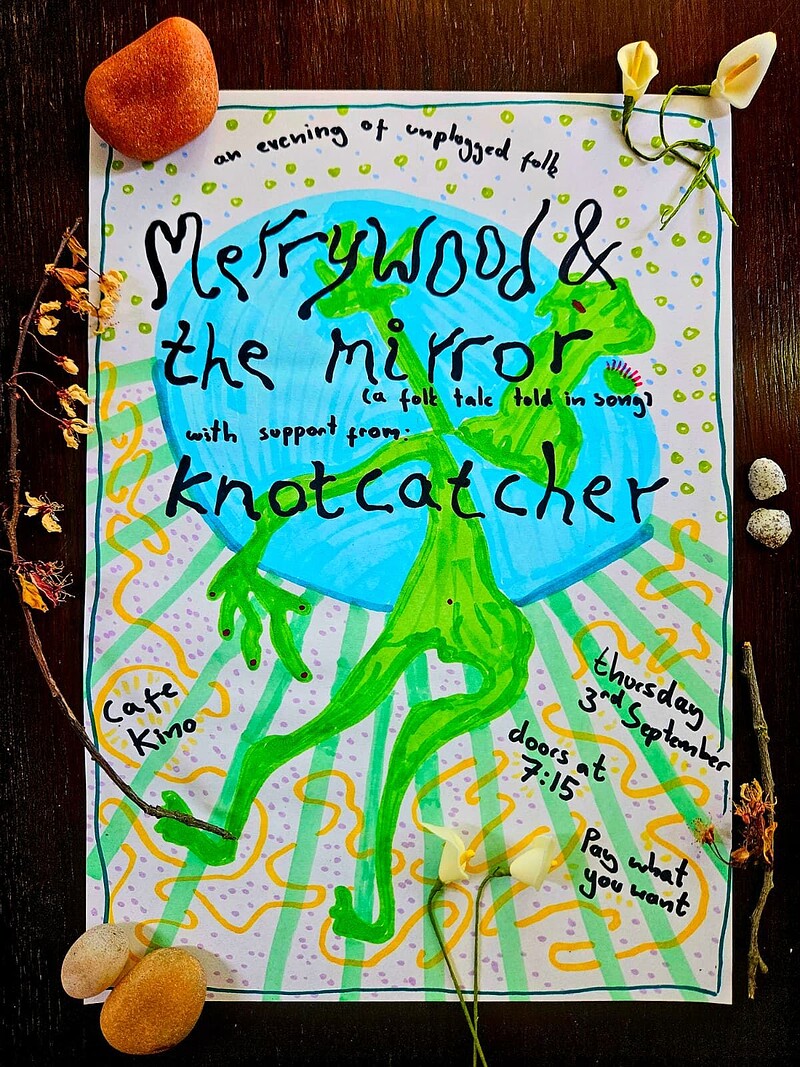 an evening of unplugged folk
Merrywood &
the mirror
(a folk tale told in song)
with support from:
knotcatcher
Cafe
Kino
thursday
3rd September
doors at
7:15
Pay what
you want